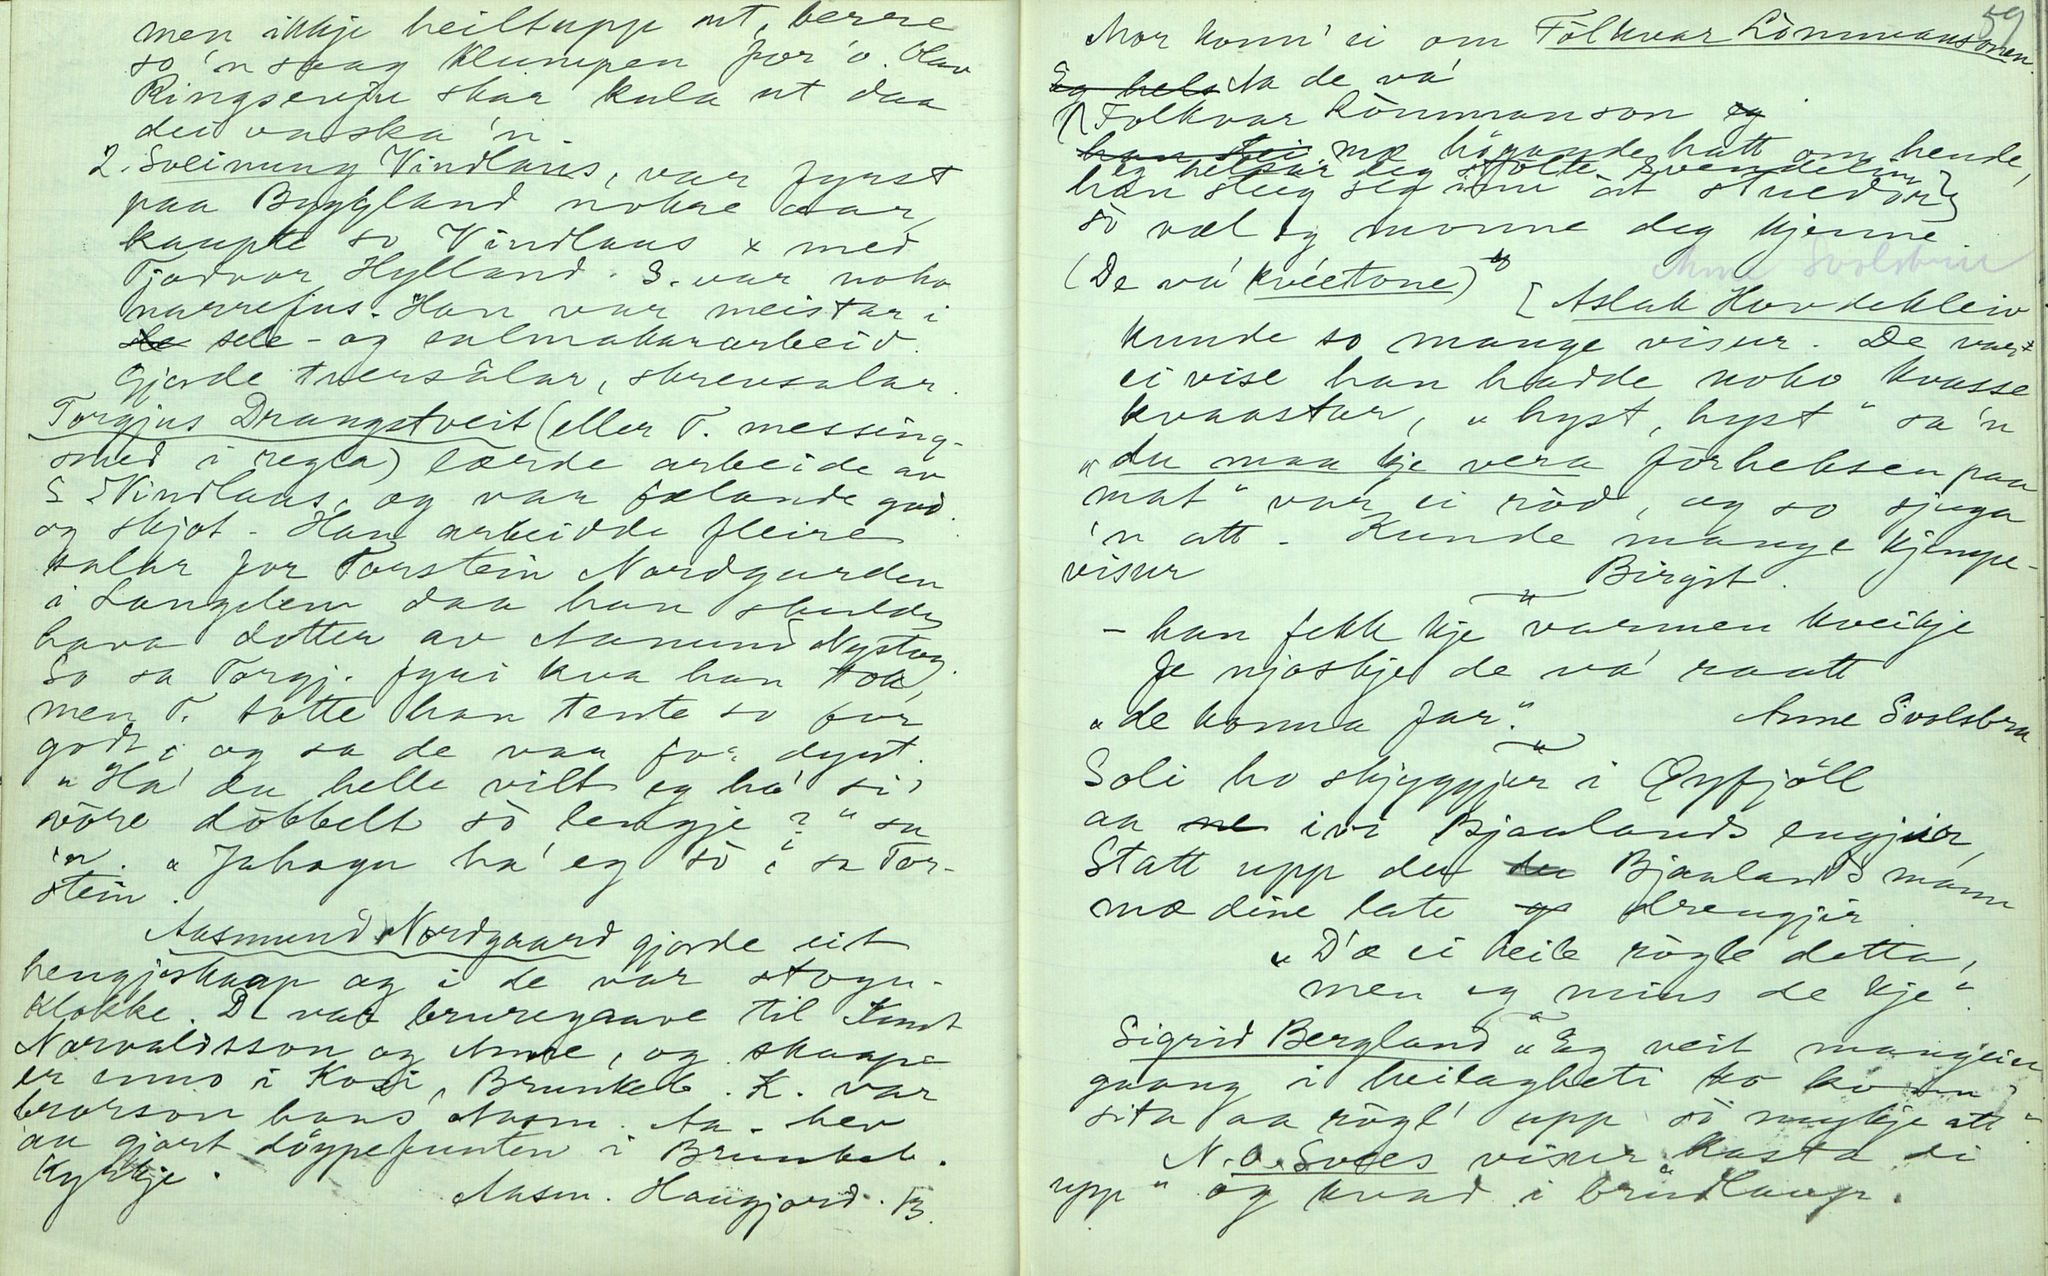 men ikkje heiltupp ut, berre
so 'n saag klumpen for 'o. Olav
Ringserju skar kula ut daa
dei vaska 'n.
2. Sveinung Vindlaus, var fyrst
paa Byggland nokre aar,
kaupte so Vindlaus x med
Tjodvor Hylland. S. var noko
narrefus. Han var meistar i
sele- og salmakararbeid.
Gjorde tversålar, skrevsalar.
Torgjus Drangstveit (eller T. messing-
smed i regla) lærde arbeide av
S Vindlaus, og var fælande god
og skjot. Han arbeidde fleire
salar for Torstein Nordgarden
i Langelem daa han skulde
hava dotter av Aamund Nystog.
So sa Torgj. fyri kva han tok,
men T. totte han tente so for
godt, og sa de var for dyrt.
"Ha' du helle vilt eg ha' si'
vòre dòbbelt sò lengje?" sa
'n. "Jahogu ha' eg sò", sa Tor-
stein.
Aasmund Nordgaard gjorde eit
hengjeskaap og i de var stogu-
klokke. D var bruregaave til Knut
Norvaldsson og Anne, og skaape
er enno i Kosi, Brunkeb. K. var
brorson hans Aasm. Aa. hev
au gjort döypefunten i Brunkeb.
Kyrkje.
Aasm. Haugjord. B.
59
Mor konn' ei om Fòlkvar Lòmmansonen.
Eg hels Aa de va'
Folkvar Lòmmanson og
han stei mæ högande hatt om hende,
eg helsar deg stolte Svendelin
han steig seg inn åt stuedör
sò væl eg monne deg kjenne.
(De va' kvéetone)
Anne Svolsbru
[Aslak Hovdekleiv
kunde so mange visur. De var
ei vise han hadde noko kvasse
kvaastar, "hyst, hyst" sa 'n
"du maa kje vera förhebsen paa
mat" var ei röd, og so sjuga
'n att. Kunde mange kjempe-
visur
Birgit.
- han fekk kje varmen kveikje
fe njoskje de va' raatt
"de konna far".
Anne Svolsbru
Soli ho skjyggjer i Öyfjöll
aa ne ivi Bjaalands engjir,
Statt upp du Bjaalands mann
mæ dine late drengjir
"D'æ ei heile rògle detta,
men eg mins de kje"
Sigrid Bergland "Eg veit mangein
gaang i heilagheti ko ko dn
sita aa rògl' upp sò mykje att"
N. O. Svees visur "kasta di
upp" og kvad i brudlaup.